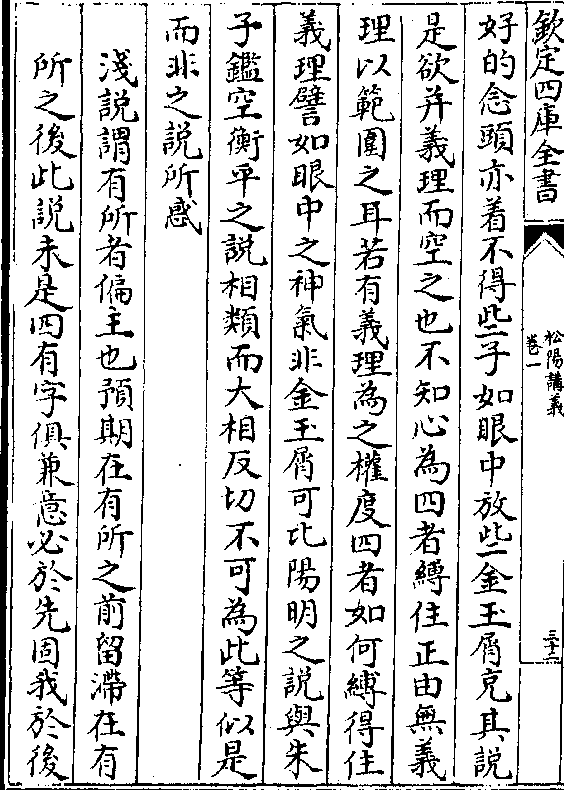 欽定四庫全書
松陽講義
卷一
三十二
好的念頭亦着不得些子如眼中放些金玉屑克其說
是欲并義理而空之也不知心為四者縛住正由無義
理以範圍之耳若有義理為之權度四者如何縛得住
義理譬如眼中之神氣非金玉屑可比陽明之說與朱
子鑑空衡平之說相類而大相反切不可為此等似是
而非之說所惑
淺說謂有所者偏主也預期在有所之前留滯在有
所之後此說未是四有字俱兼意必於先固我於後